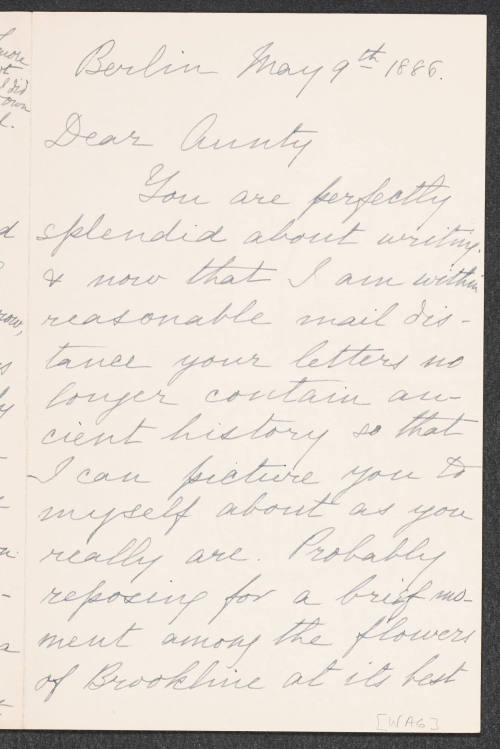 Berlin May 9th 1886.
Dear Aunty
You are perfectly
splendid about writing
& now that I am within
reasonable mail dis-
tance your letters no
longer contain an-
cient history so that
I can picture you to
myself about as you
really are. Probably
reposing for a brief mo-
ment among the flowers
of Brookline at its best
[WAG]